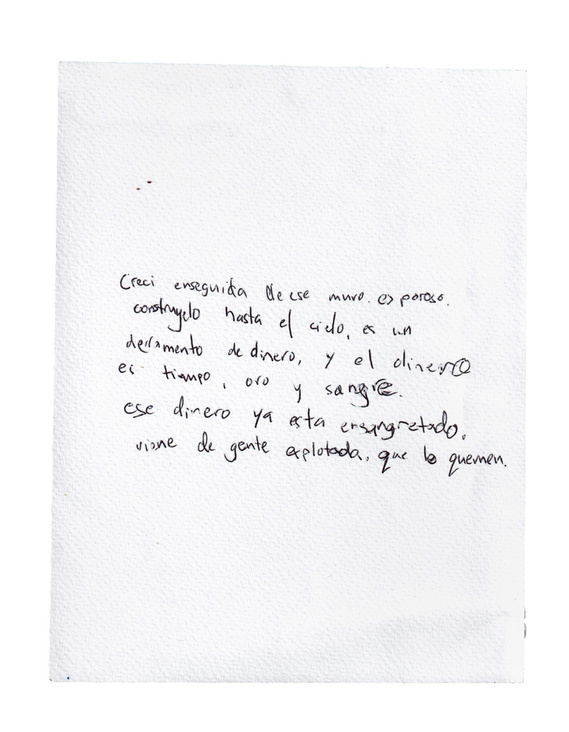 Creci enseguida de ese muro. es poroso.
construyelo hasta el cielo, es un
derramento de dinero, y el dinero
es tiempo, oro y sangre.
ese dinero ya esta ensangretado.
viene de gente explotada, que lo quemen.